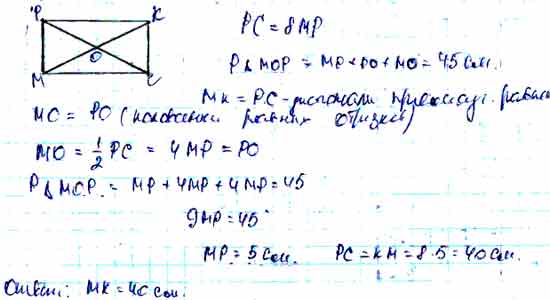 P K
O
M C
PC = 8MP
P△MOP = MP + PO + MO = 45 см.
MK = PC - диагонали прямоуг. равны
MO = PO (половинки равных отрезков)
MO = 1/2 PC = 4MP = PO
P△MOP = MP + 4MP + 4MP = 45
9MP = 45
MP = 5 см. PC = KM = 8 · 5 = 40 см.
Ответ: MK = 40 см.